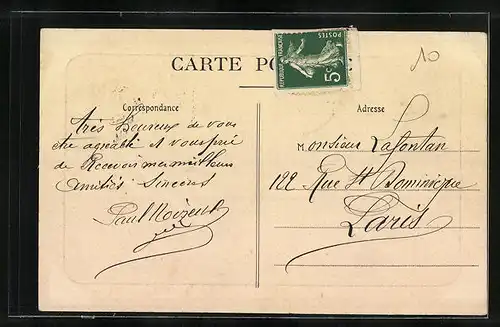 10
CARTE PO
REPUBLIQUE FRANÇAISE
POSTES
5c
Correspondance
très heureux de vous
etre agréable et vous prie
de Recevoir mes meilleurs
Amitiés Sincères
Paul
Adresse
Monsieur Lafontan
122 Rue St Dominique
Paris